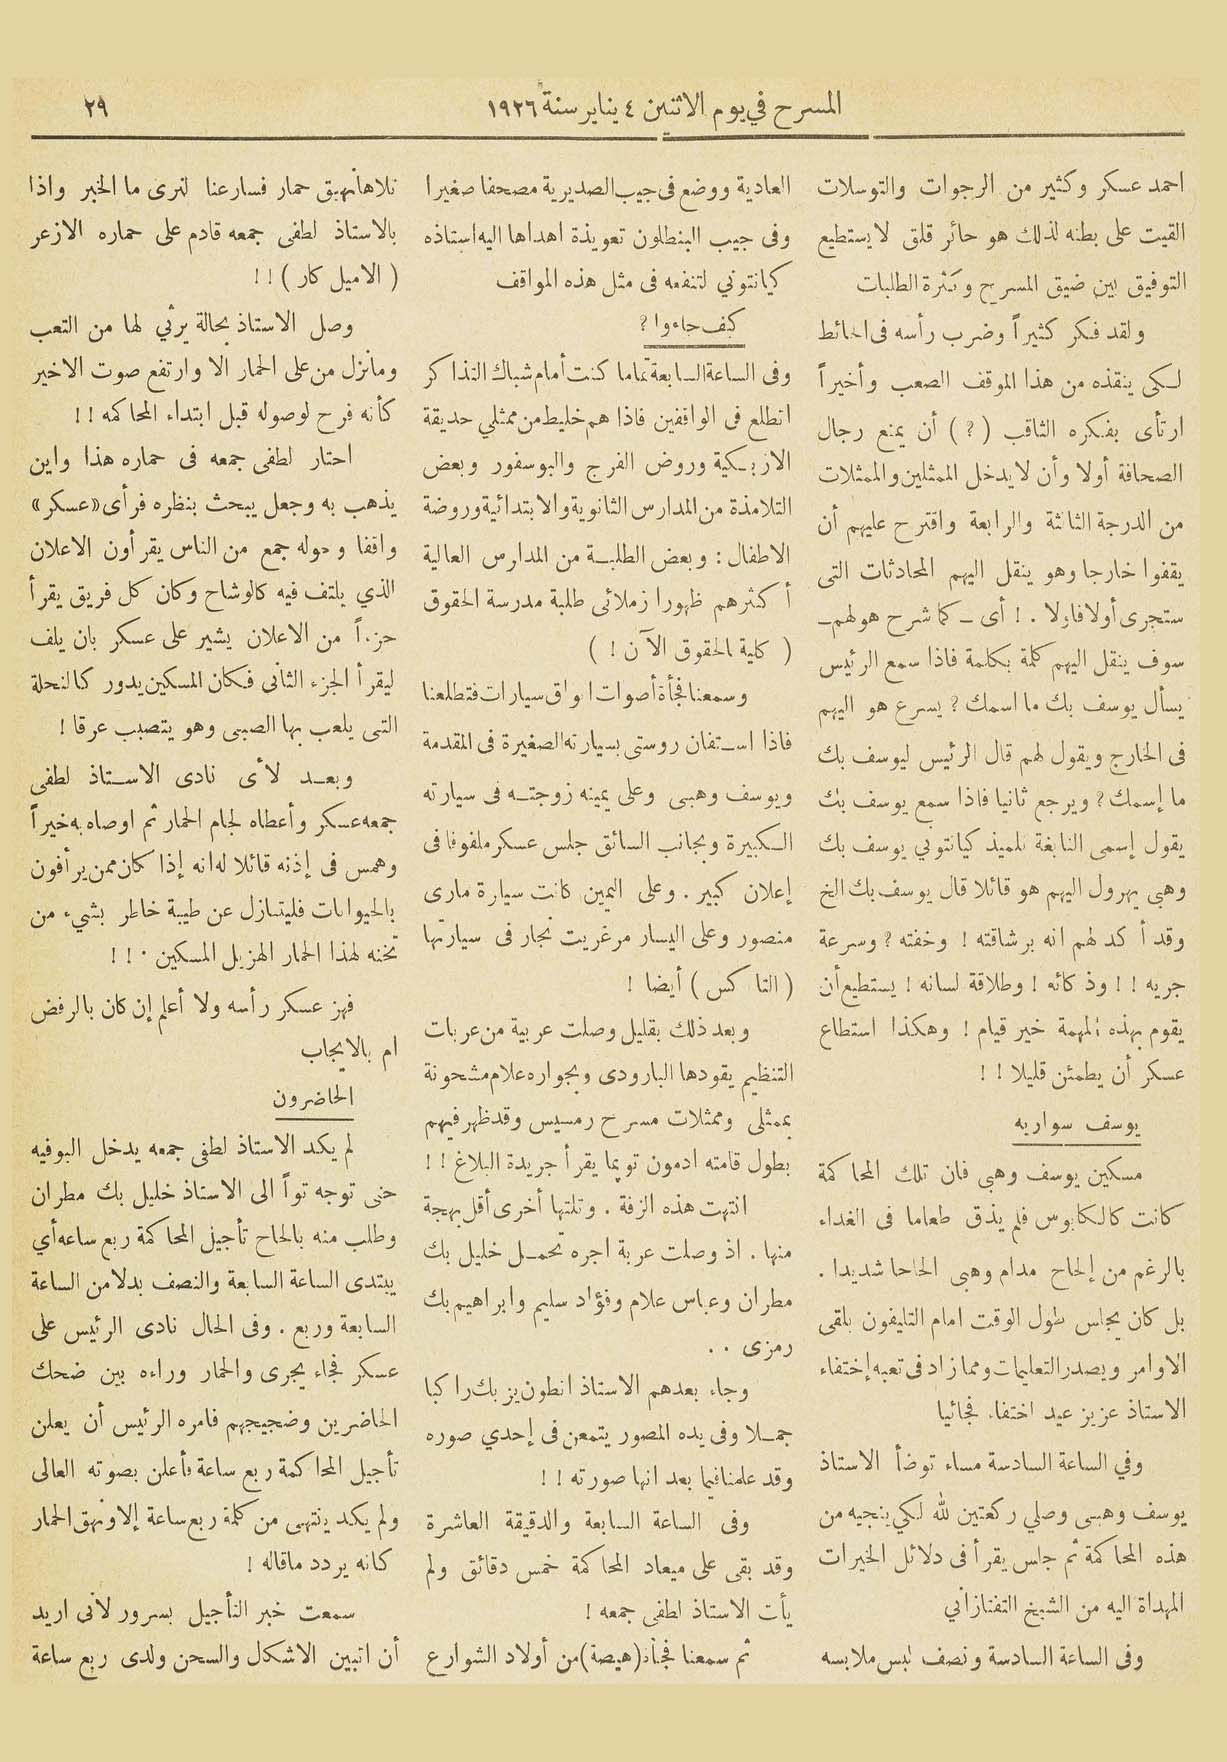 المسرح في يوم الاثنين ٤ يناير سنة ١٩٢٦
٢٩
احمد عسكر وكثير من الرجوات والتوسلات
القيت على بطنه لذلك هو حائر قلق لا يستطيع
التوفيق بين ضيق المسرح وكثرة الطلبات
ولقد فكر كثيراً وضرب رأسه فى الحائط
لكى ينقذه من هذا الموقف الصعب وأخيراً
ارتأى بفكره الثاقب (؟) أن يمنع رجال
الصحافة أولا وأن لا يدخل الممثلين والممثلات
من الدرجة الثالثة والرابعة واقترح عليهم أن
يقفوا خارجا وهو ينقل اليهم المحادثات التى
ستجرى أولا فاولا . ! أى ـ كما شرح هو لهم ـ
سوف ينقل اليهم كلمة بكلمة فاذا سمع الرئيس
يسأل يوسف بك ما اسمك ؟ يسرع هو اليهم
فى الخارج ويقول لهم قال الرئيس ليوسف بك
ما إسمك ؟ ويرجع ثانيا فاذا سمع يوسف بك
يقول إسمى النابغة تلميذ كيانتوني يوسف بك
وهبي يهرول اليهم هو قائلا قال يوسف بك الخ
وقد أكد لهم انه برشاقته ! وخفته ؟ وسرعة
جريه ! ! وذكائه ! وطلاقة لسانه ! يستطيع أن
يقوم بهذه المهمة خير قيام ! وهكذا استطاع
عسكر أن يطمئن قليلا ! !
يوسف سواريه
مسكين يوسف وهبي فان تلك المحاكمة
كانت كالكابوس فلم يذق طعاما فى الغداء
بالرغم من إلحاح مدام وهبى الحاحا شديدا .
بل كان يجلس طول الوقت امام التليفون يلقى
الاوامر ويصدر التعليمات ومما زاد فى تعبه إختفاء
الاستاذ عزيز عيد اختفاء فجائيا
وفي الساعة السادسة مساء توضأ الاستاذ
يوسف وهبى وصلي ركعتين لله لكي ينجيه من
هذه المحاكمة ثم جلس يقرأ فى دلائل الخيرات
المهداة اليه من الشيخ التفتازاني
وفى الساعة السادسة ونصف لبس ملابسه
العادية ووضع فى جيب الصديرية مصحفا صغيرا
وفى جيب البنطلون تعويذة اهداها اليه استاذه
كيانتوني لتنفعه فى مثل هذه المواقف
كيف جاءوا ؟
وفى الساعة السابعة تماما كنت أمام شباك التذاكر
اتطلع فى الواقفين فاذا هم خليط من ممثلي حديقة
الازبكية وروض الفرج والبوسفور وبعض
التلامذة من المدارس الثانوية والابتدائية وروضة
الاطفال : وبعض الطلبة من المدارس العالية
أكثرهم ظهورا زملائى طلبة مدرسة الحقوق
( كلية الحقوق الآن ! )
وسمعنا فجأة أصوات ابواق سيارات فتطلعنا
فاذا استفان روستى بسيارته الصغيرة فى المقدمة
ويوسف وهبى وعلى يمينه زوجته فى سيارته
الكبيرة وبجانب السائق جلس عسكر ملفوفا فى
إعلان كبير . وعلى اليمين كانت سيارة مارى
منصور وعلى اليسار مرغريت نجار فى سيارتها
( التاكس ) أيضا !
وبعد ذلك بقليل وصلت عربية من عربات
التنظيم يقودها البارودى وبجواره علام مشحونة
بممثلى وممثلات مسرح رمسيس وقد ظهر فيهم
بطول قامته ادمون تويما يقرأ جريدة البلاغ ! !
انتهت هذه الزفة . وتلتها أخرى أقل بهجة
منها . اذ وصلت عربة اجره تحمل خليل بك
مطران وعباس علام وفؤاد سليم وابراهيم بك
رمزى . .
وجاء بعدهم الاستاذ انطون يزبك راكبا
جملا وفى يده المصور يتمعن فى إحدي صوره
وقد علمنا فيما بعد انها صورته ! !
وفى الساعة السابعة والدقيقة العاشرة
وقد بقى على ميعاد المحاكمة خمس دقائق ولم
يأت الاستاذ لطفى جمعه !
ثم سمعنا فجأة (هيصة) من أولاد الشوارع
تلاها نهيق حمار فسارعنا لنرى ما الخبر واذا
بالاستاذ لطفى جمعه قادم على حماره الازعر
( الاميل كار ) ! !
وصل الاستاذ بحالة يرثي لها من التعب
وما نزل من على الحمار الا وارتفع صوت الاخير
كأنه فرح لوصوله قبل ابتداء المحاكمه ! !
احتار لطفى جمعه فى حماره هذا واين
يذهب به وجعل يبحث بنظره فرأى «عسكر»
واقفا وحوله جمع من الناس يقرأون الاعلان
الذي يلتف فيه كالوشاح وكان كل فريق يقرأ
جزءاً من الاعلان يشير على عسكر بان يلف
ليقرأ الجزء الثانى فكان المسكين يدور كالنحلة
التى يلعب بها الصبى وهو يتصبب عرقا !
وبعد لأى نادى الاستاذ لطفى
جمعه عسكر وأعطاه لجام الحمار ثم اوصاه به خيراً
وهمس فى إذنه قائلا له انه إذا كان ممن يرأفون
بالحيوانات فليتنازل عن طيبة خاطر بشيء من
تخنه لهذا الحمار الهزيل المسكين ٠ ! !
فهز عسكر رأسه ولا أعلم إن كان بالرفض
ام بالايجاب
الحاضرون
لم يكد الاستاذ لطفى جمعه يدخل البوفيه
حتى توجه تواً الى الاستاذ خليل بك مطران
وطلب منه بالحاح تأجيل المحاكمة ربع ساعه أي
يبتدى الساعة السابعة والنصف بدلا من الساعة
السابعة وربع . وفى الحال نادى الرئيس على
عسكر فجاء يجرى والحمار وراءه بين ضحك
الحاضرين وضجيجهم فامره الرئيس أن يعلن
تأجيل المحاكمة ربع ساعة فأعلن بصوته العالى
ولم يكد ينتهى من كلمة ربع ساعة إلا ونهق الحمار
كانه يردد ما قاله !
سمعت خبر التأجيل بسرور لانى اريد
أن اتبين الاشكال والسحن ولدى ربع ساعة